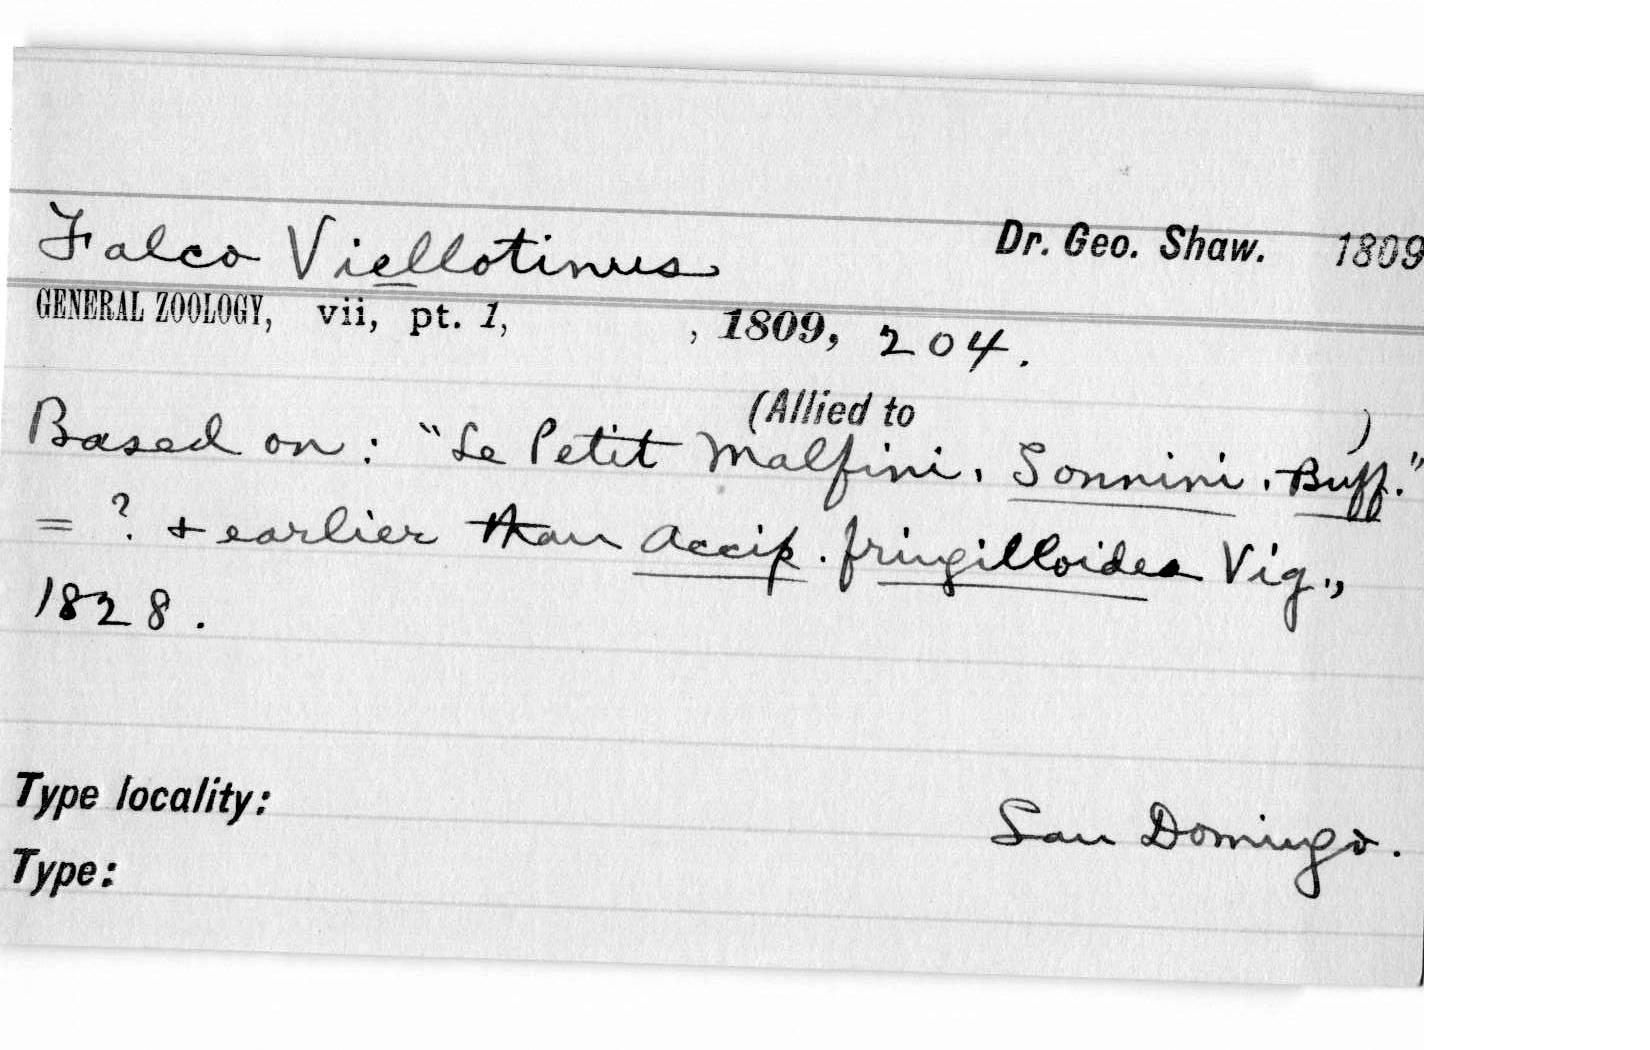 Falco Viellotinus Dr. Geo. Shaw. 1809
GENERAL ZOOLOGY, vii, pt. 1, , 1809, 204.
(Allied to )
Based on: "Le Petit Malfini, Sonnini, Buff."
= ? + earlier than Accip. fringilloides Vig.,
1828.
Type locality: San Domingo.
Type: